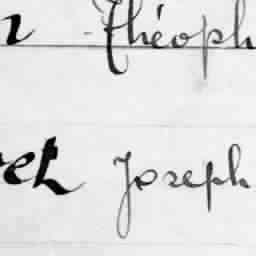 n - Théoph
ret Joseph